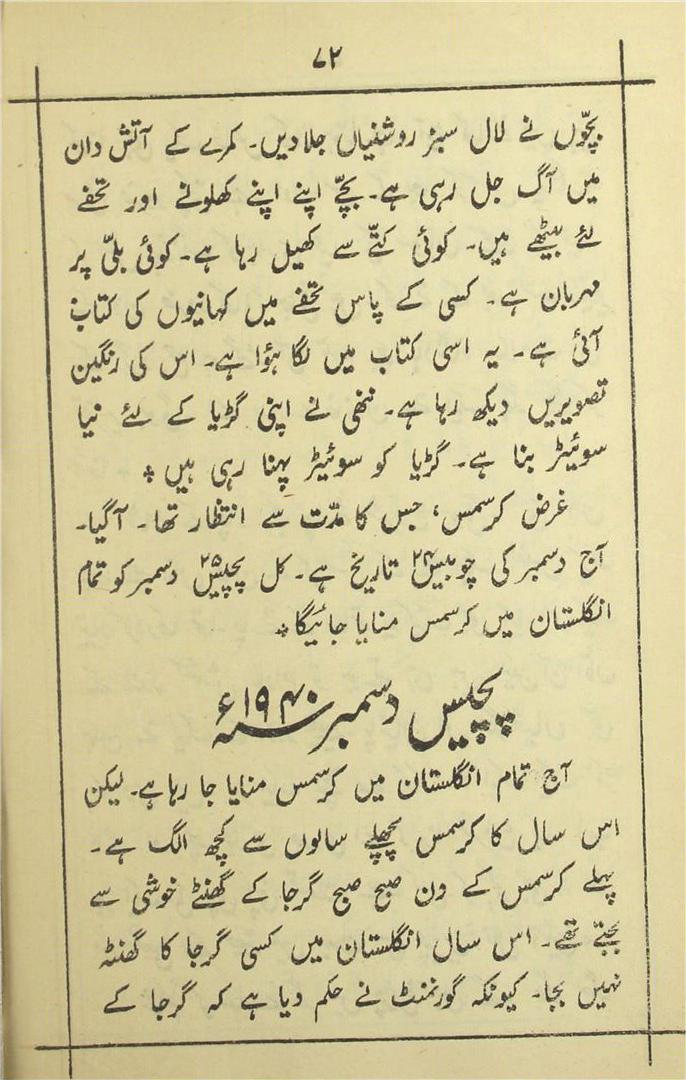 ۷۲
بچّوں نے لال سبز روشنیاں جلا دیں۔ کمرے کے آتش دان
میں آگ جل رہی ہے۔ بچّے اپنے اپنے کھلونے اور تحفے
لئے بیٹھے ہیں۔ کوئی کتّے سے کھیل رہا ہے۔ کوئی بلّی پر
مہربان ہے۔ کسی کے پاس تحفے میں کہانیوں کی کتاب
آئی ہے۔ یہ اسی کتاب میں لگا ہؤا ہے۔ اس کی رنگین
تصویریں دیکھ رہا ہے۔ ننھی نے اپنی گڑیا کے لئے نیا
سوئیٹر بنا ہے۔ گڑیا کو سوئیٹر پہنا رہی ہیں *
غرض کرسمس، جس کا مدّت سے انتظار تھا۔ آگیا۔
آج دسمبر کی چوبیس ۲۴ تاریخ ہے۔ کل پچیس ۲۵ دسمبر کو تمام
انگلستان میں کرسمس منایا جائیگا *
پچیس دسمبر سنہ ۱۹۴۰ء
آج تمام انگلستان میں کرسمس منایا جا رہا ہے۔ لیکن
اس سال کا کرسمس پچھلے سالوں سے کچھ الگ ہے۔
پہلے کرسمس کے دن صبح صبح گرجا کے گھنٹے خوشی سے
بجتے تھے۔ اس سال انگلستان میں کسی گرجا کا گھنٹہ
نہیں بجا۔ کیونکہ گورنمنٹ نے حکم دیا ہے کہ گرجا کے